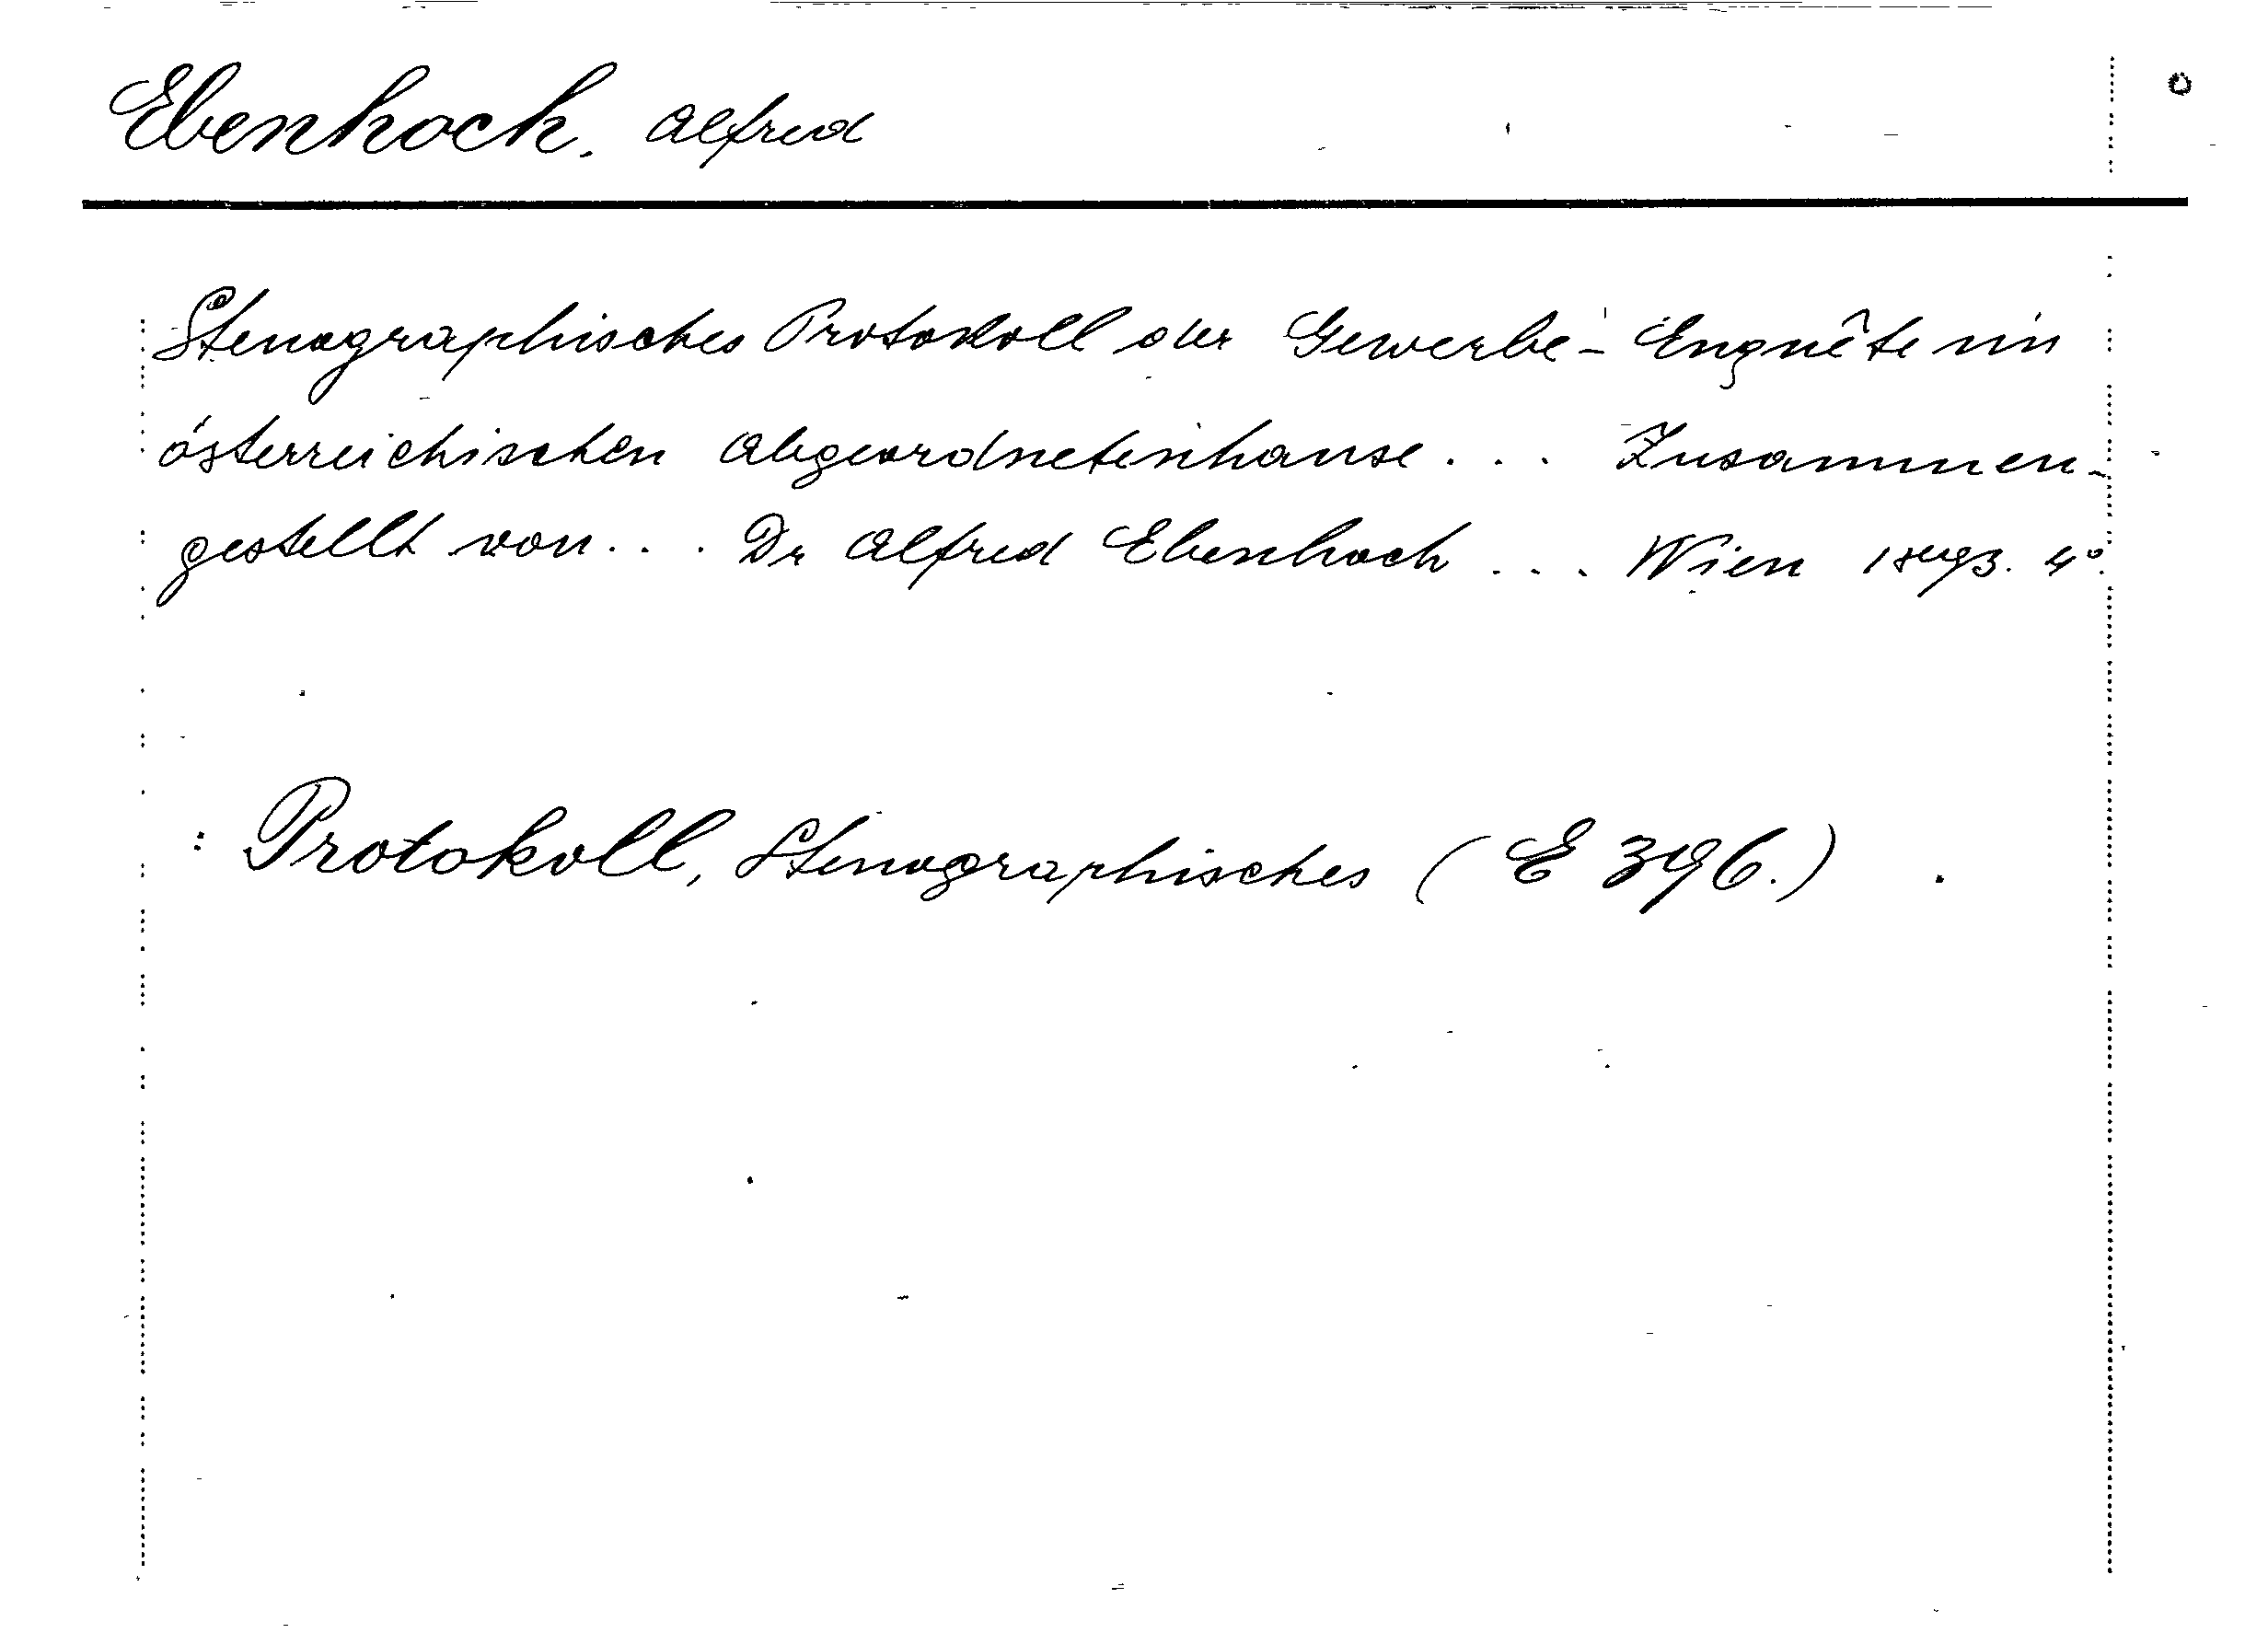 Ebenhoch, Alfred
Stenographisches Protokoll der Gewerbe-Enquête im
österreichischen Abgeordnetenhause... Zusammen-
gestellt von... Dr Alfred Ebenhoch... Wien 1893. 4°.
: Protokoll, Stenographisches (E 396.)